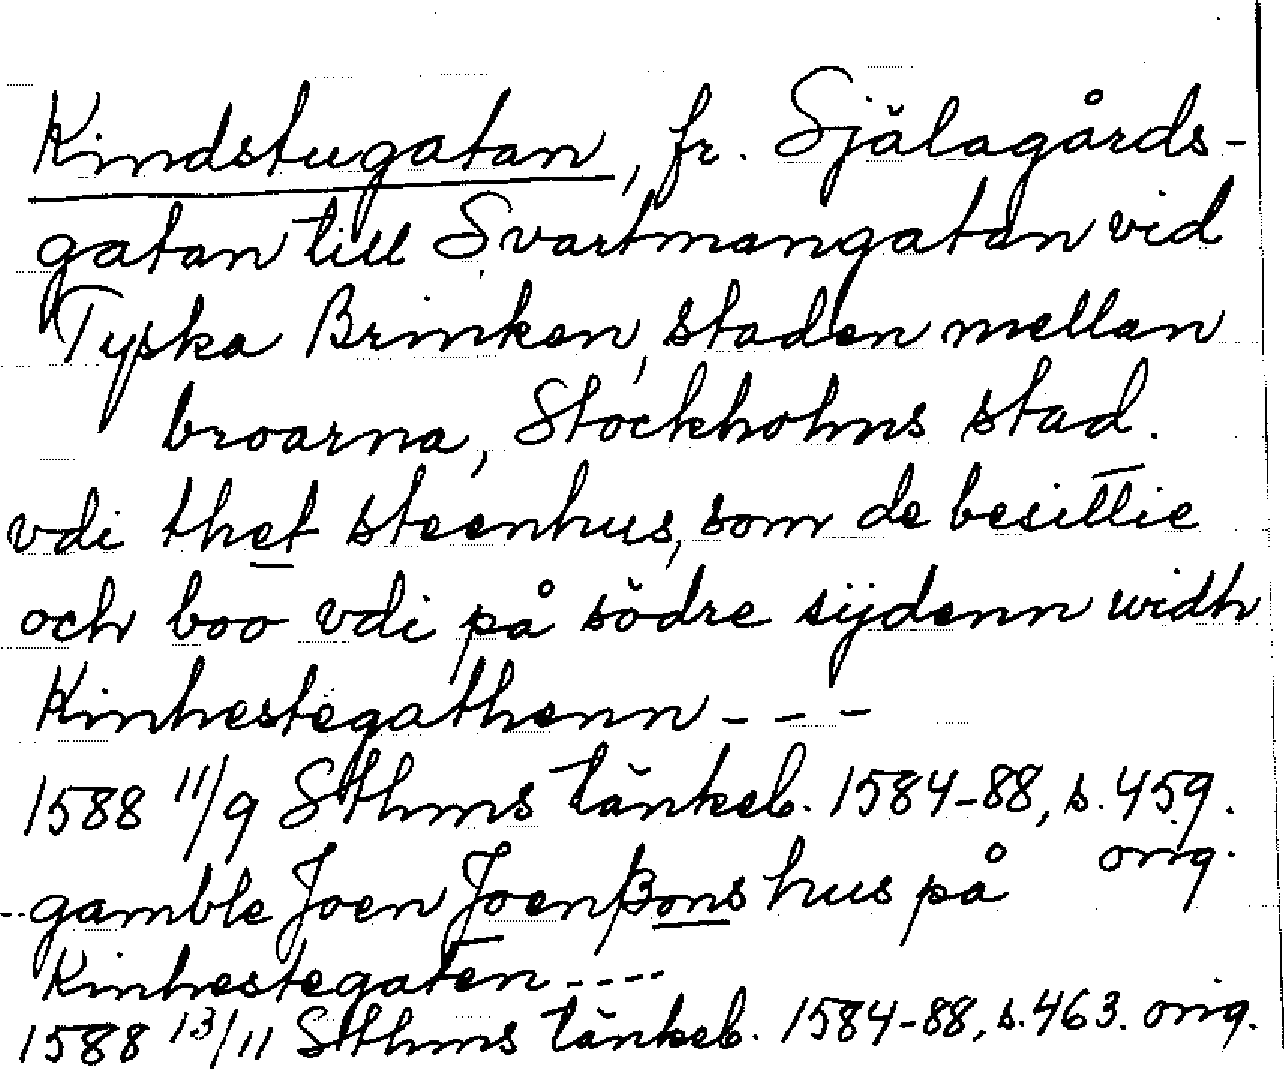 Kindstugatan, fr. Själagårds-
gatan till Svartmangatan vid
Tyska Brinken, staden mellan
broarna, Stockholms stad.
vdi thet steenhus, som de besittie
och boo vdi på södre sijdenn widh
Kinhestegathenn - - -
1588 11/9 Sthms tänkeb. 1584-88, s. 459.
orig.
gamble Joen Joenßons hus på
Kinhestegaten - - - -
1588 13/11 Sthms tänkeb. 1584-88, s. 463. orig.